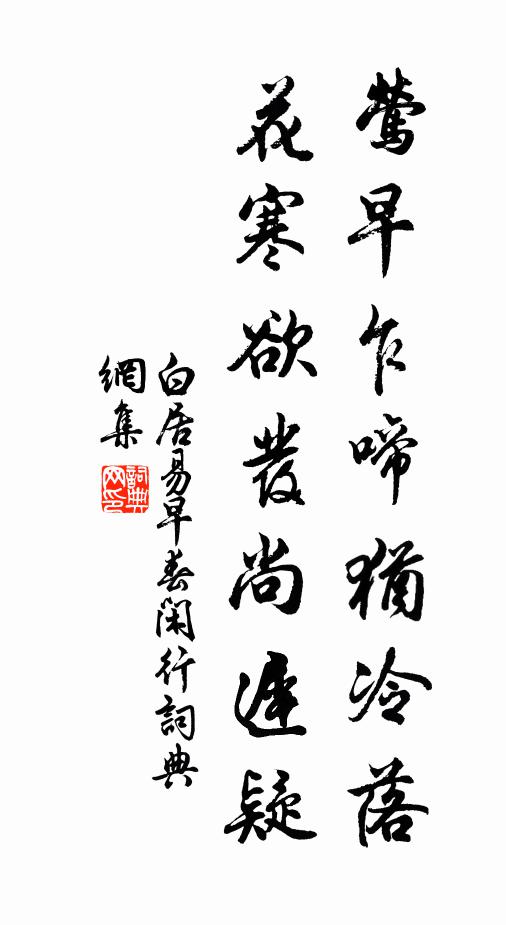 鶯早乍啼猶冷落
花寒欲發尚遲疑
白居易早春閑行詞典
網集
詞典網印